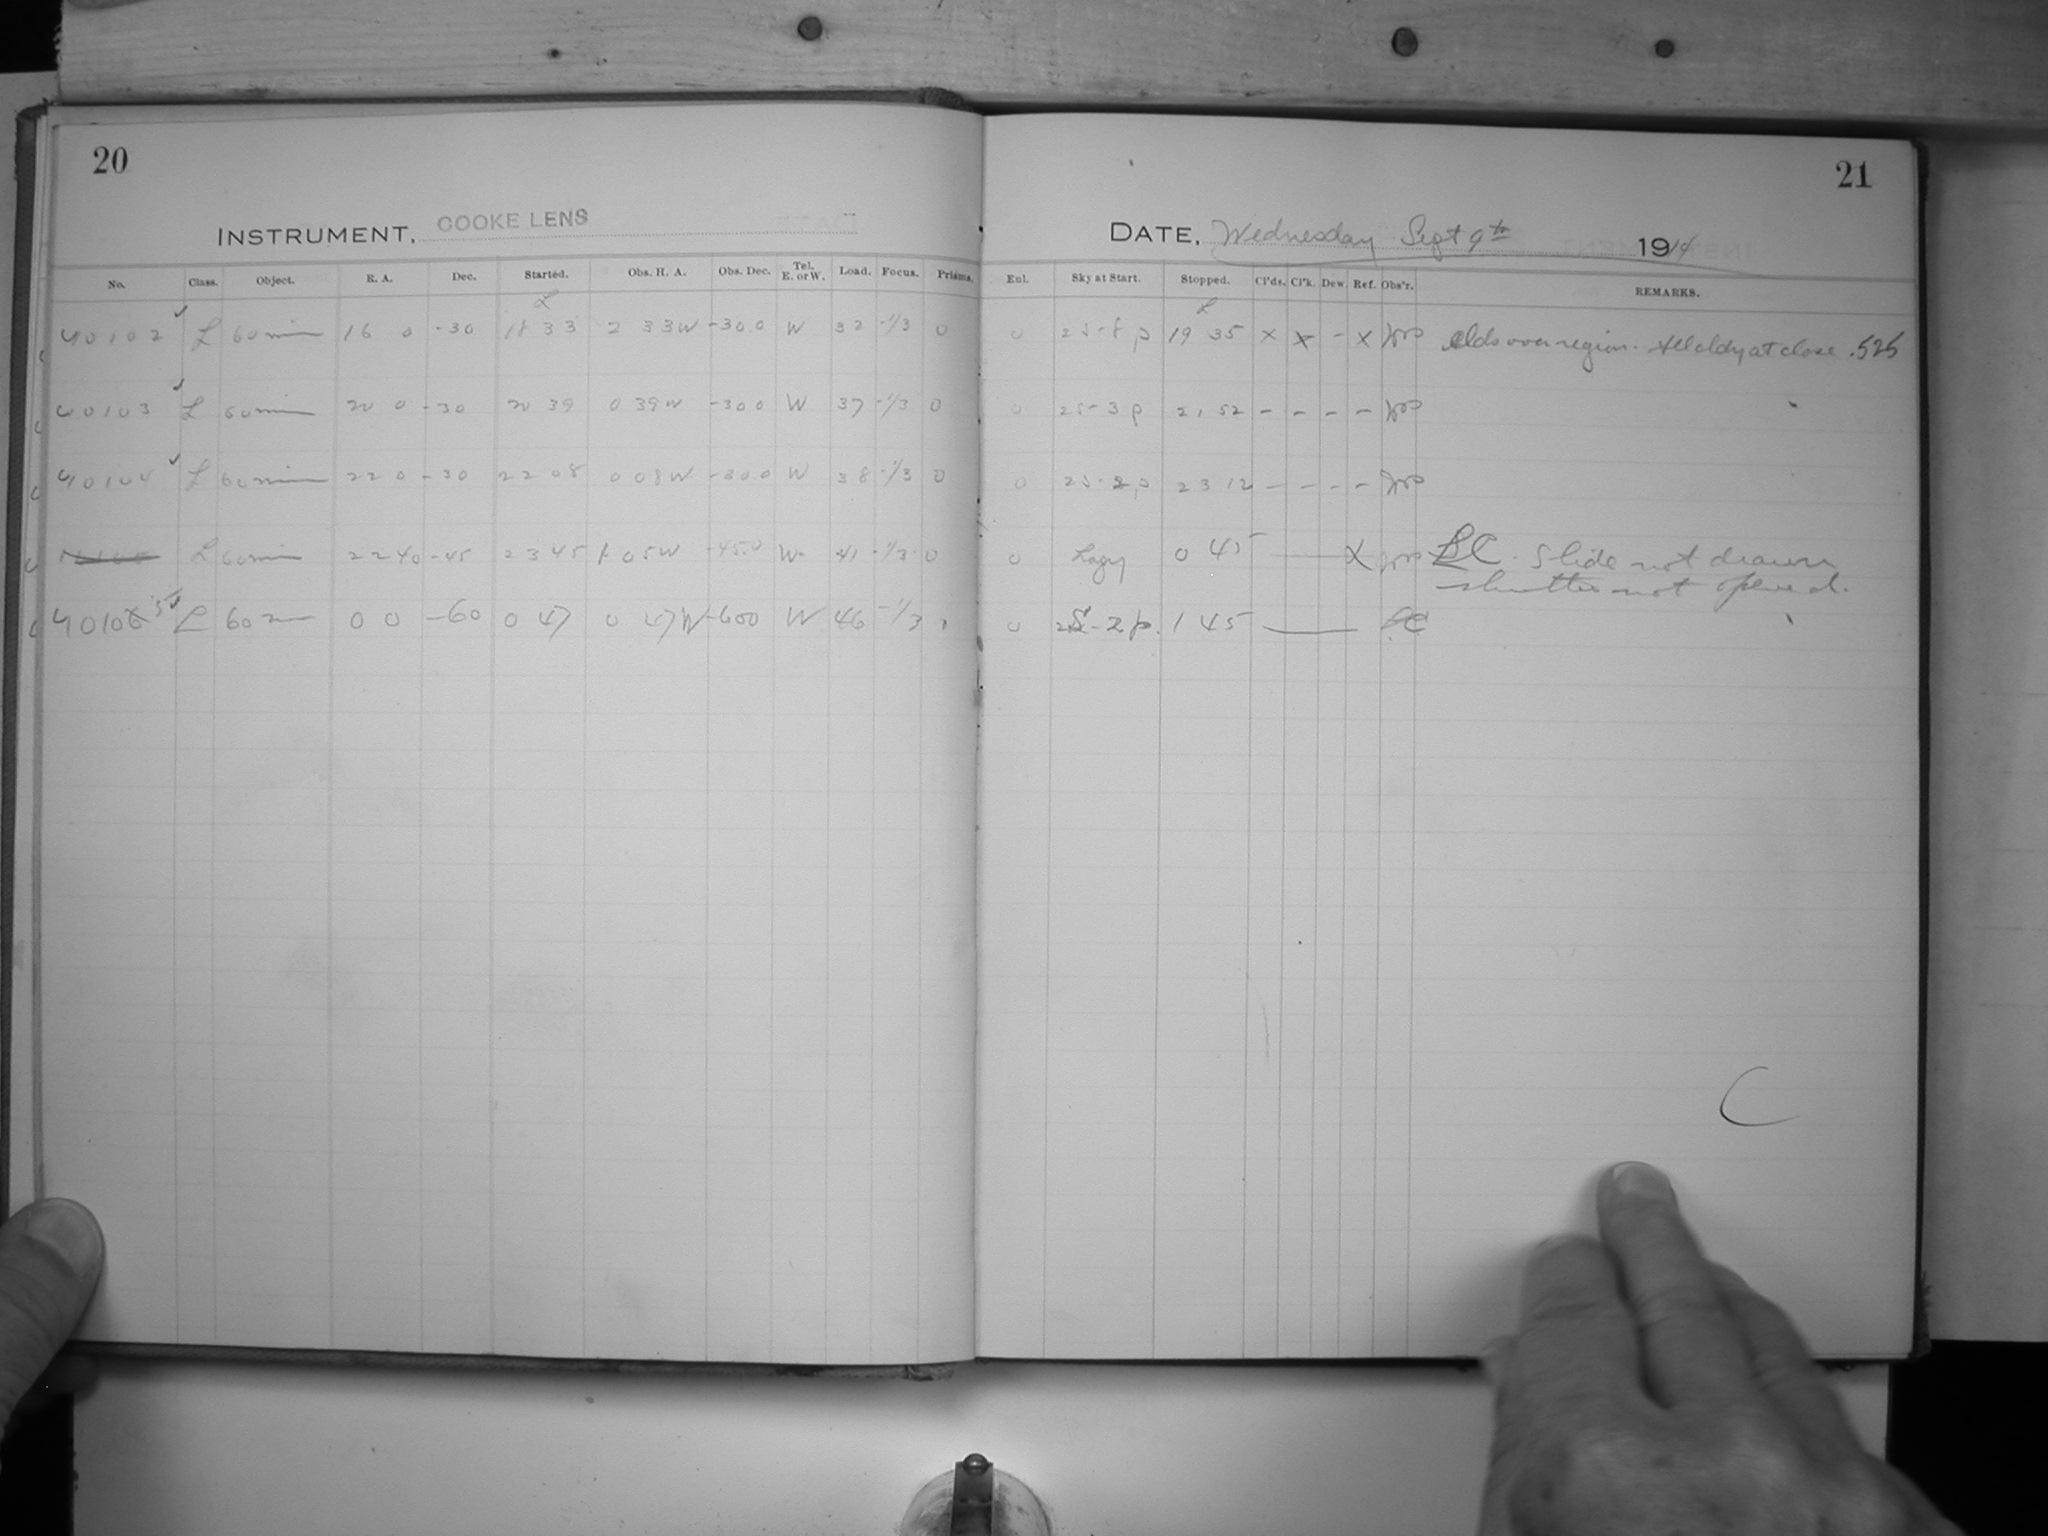 20
INSTRUMENT, COOKE LENS
No. Class. Object. R. A. Dec. Started. Obs. H. A. Obs. Dec. Tel. E. or W. Load. Focus. Prisms.
40102 L 60 min 16 0 -30 18 33 2 33 W -30.0 W 32 -1/3 0
40103 L 60 min 20 0 -30 20 39 0 39 W -30 0 W 37 -1/3 0
40104 L 60 min 22 0 -30 22 08 0 08 W -30.0 W 38 -1/3 0
L 60 min 22 40 -45 23 45 1 05 W -45.0 W 41 -1/3 0
40105 L 60 m 0 0 -60 0 47 0 47 W -60 0 W 46 -1/3
21
DATE, Wednesday Sept 9th 1914
Enl. Sky at Start. Stopped. Cl'ds. Cl'k. Dew. Ref. Obs'r. REMARKS.
0 25-8 p 19 35 x x - x clds over region. All cldy at close .525
0 25-3 p 21 52 - - - -
0 25-2 p 23 12 - - - -
0 Hazy 0 45 — X LC. Slide not drawn
shutter not opened.
0 -2 p. 1 45 — LC
C